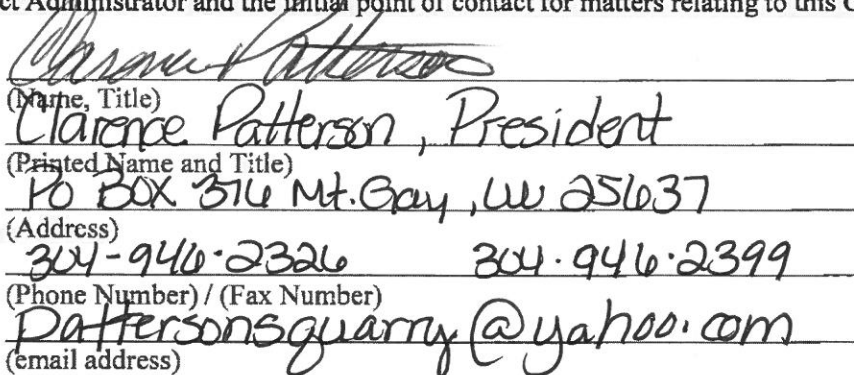 ct Administrator and the initial point of contact for matters relating to this C
Clarence Patterson
(Name, Title)
Clarence Patterson, President
(Printed Name and Title)
PO BOX 376 Mt. Gay, WV 25637
(Address)
304-946-2326 304-946-2399
(Phone Number) / (Fax Number)
pattersonsquarry@yahoo.com
(email address)